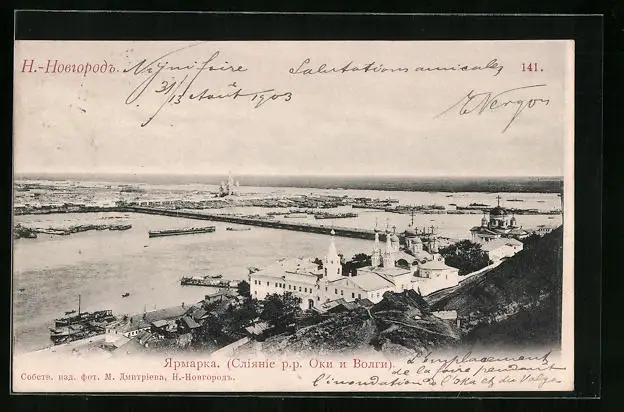 Н.-Новгородъ.
Nijni foire
Salutations amicales
141.
31/13 Août 1903
E Vergos
Ярмарка. (Сліяніе р.р. Оки и Волги).
L'emplacement
de la foire pendant
l'inondation de l'Oka et du Volga
Собств. изд. фот. М. Дмитріева, Н.-Новгородъ.